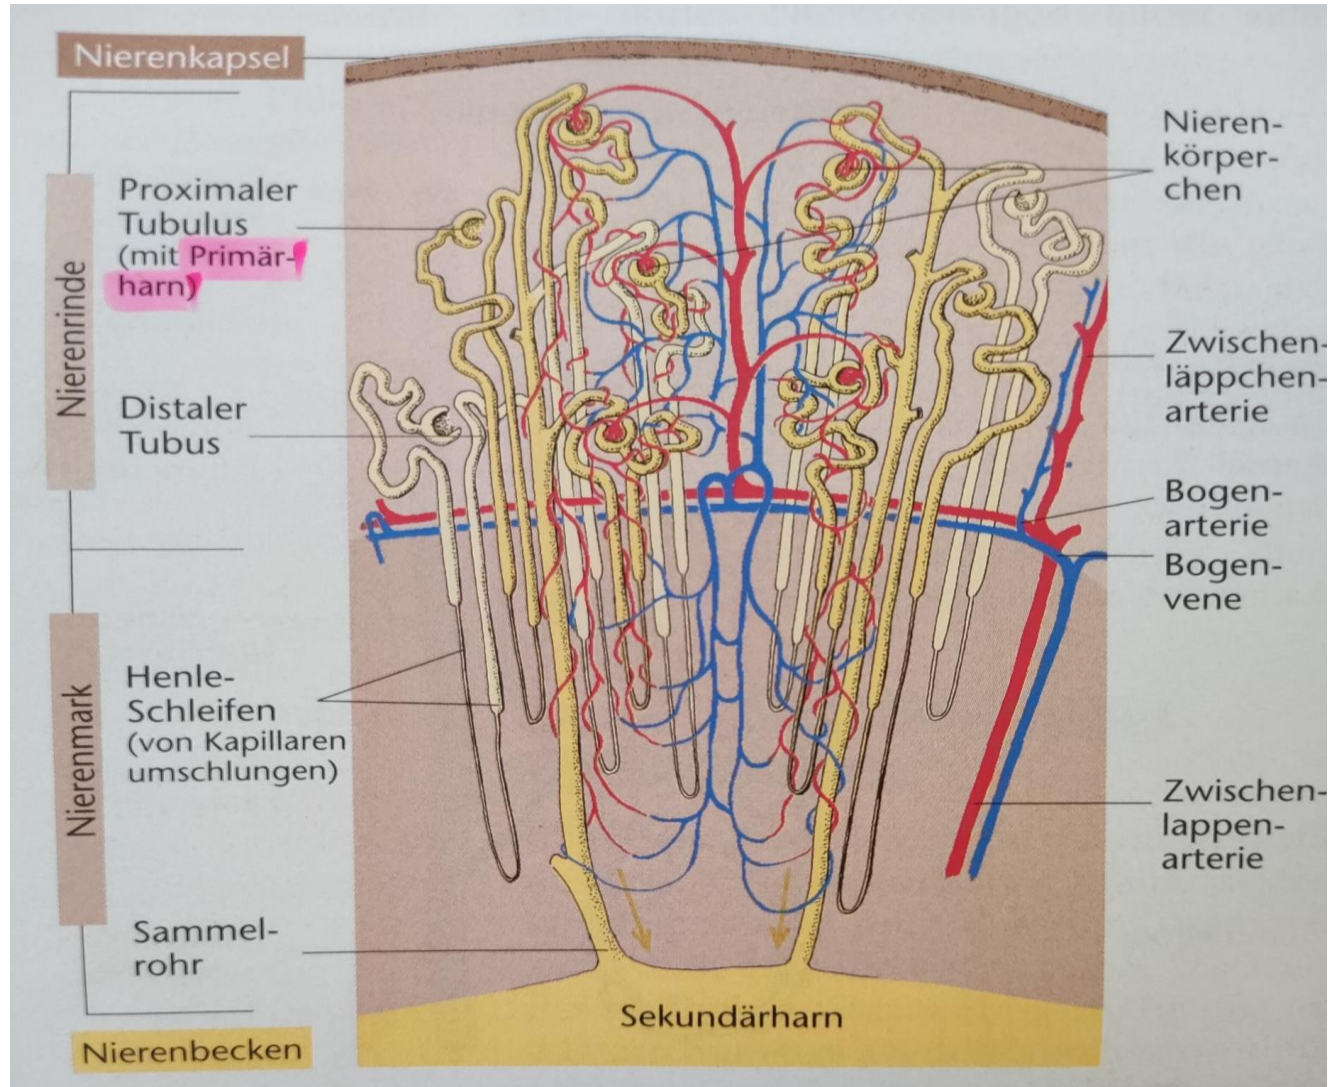 Nierenkapsel
Proximaler
Tubulus
(mit Primär-
harn)
Nierenrinde
Distaler
Tubus
Henle-
Schleifen
(von Kapillaren
umschlungen)
Nierenmark
Sammel-
rohr
Nierenbecken
Sekundärharn
Nieren-
körper-
chen
Zwischen-
läppchen-
arterie
Bogen-
arterie
Bogen-
vene
Zwischen-
lappen-
arterie